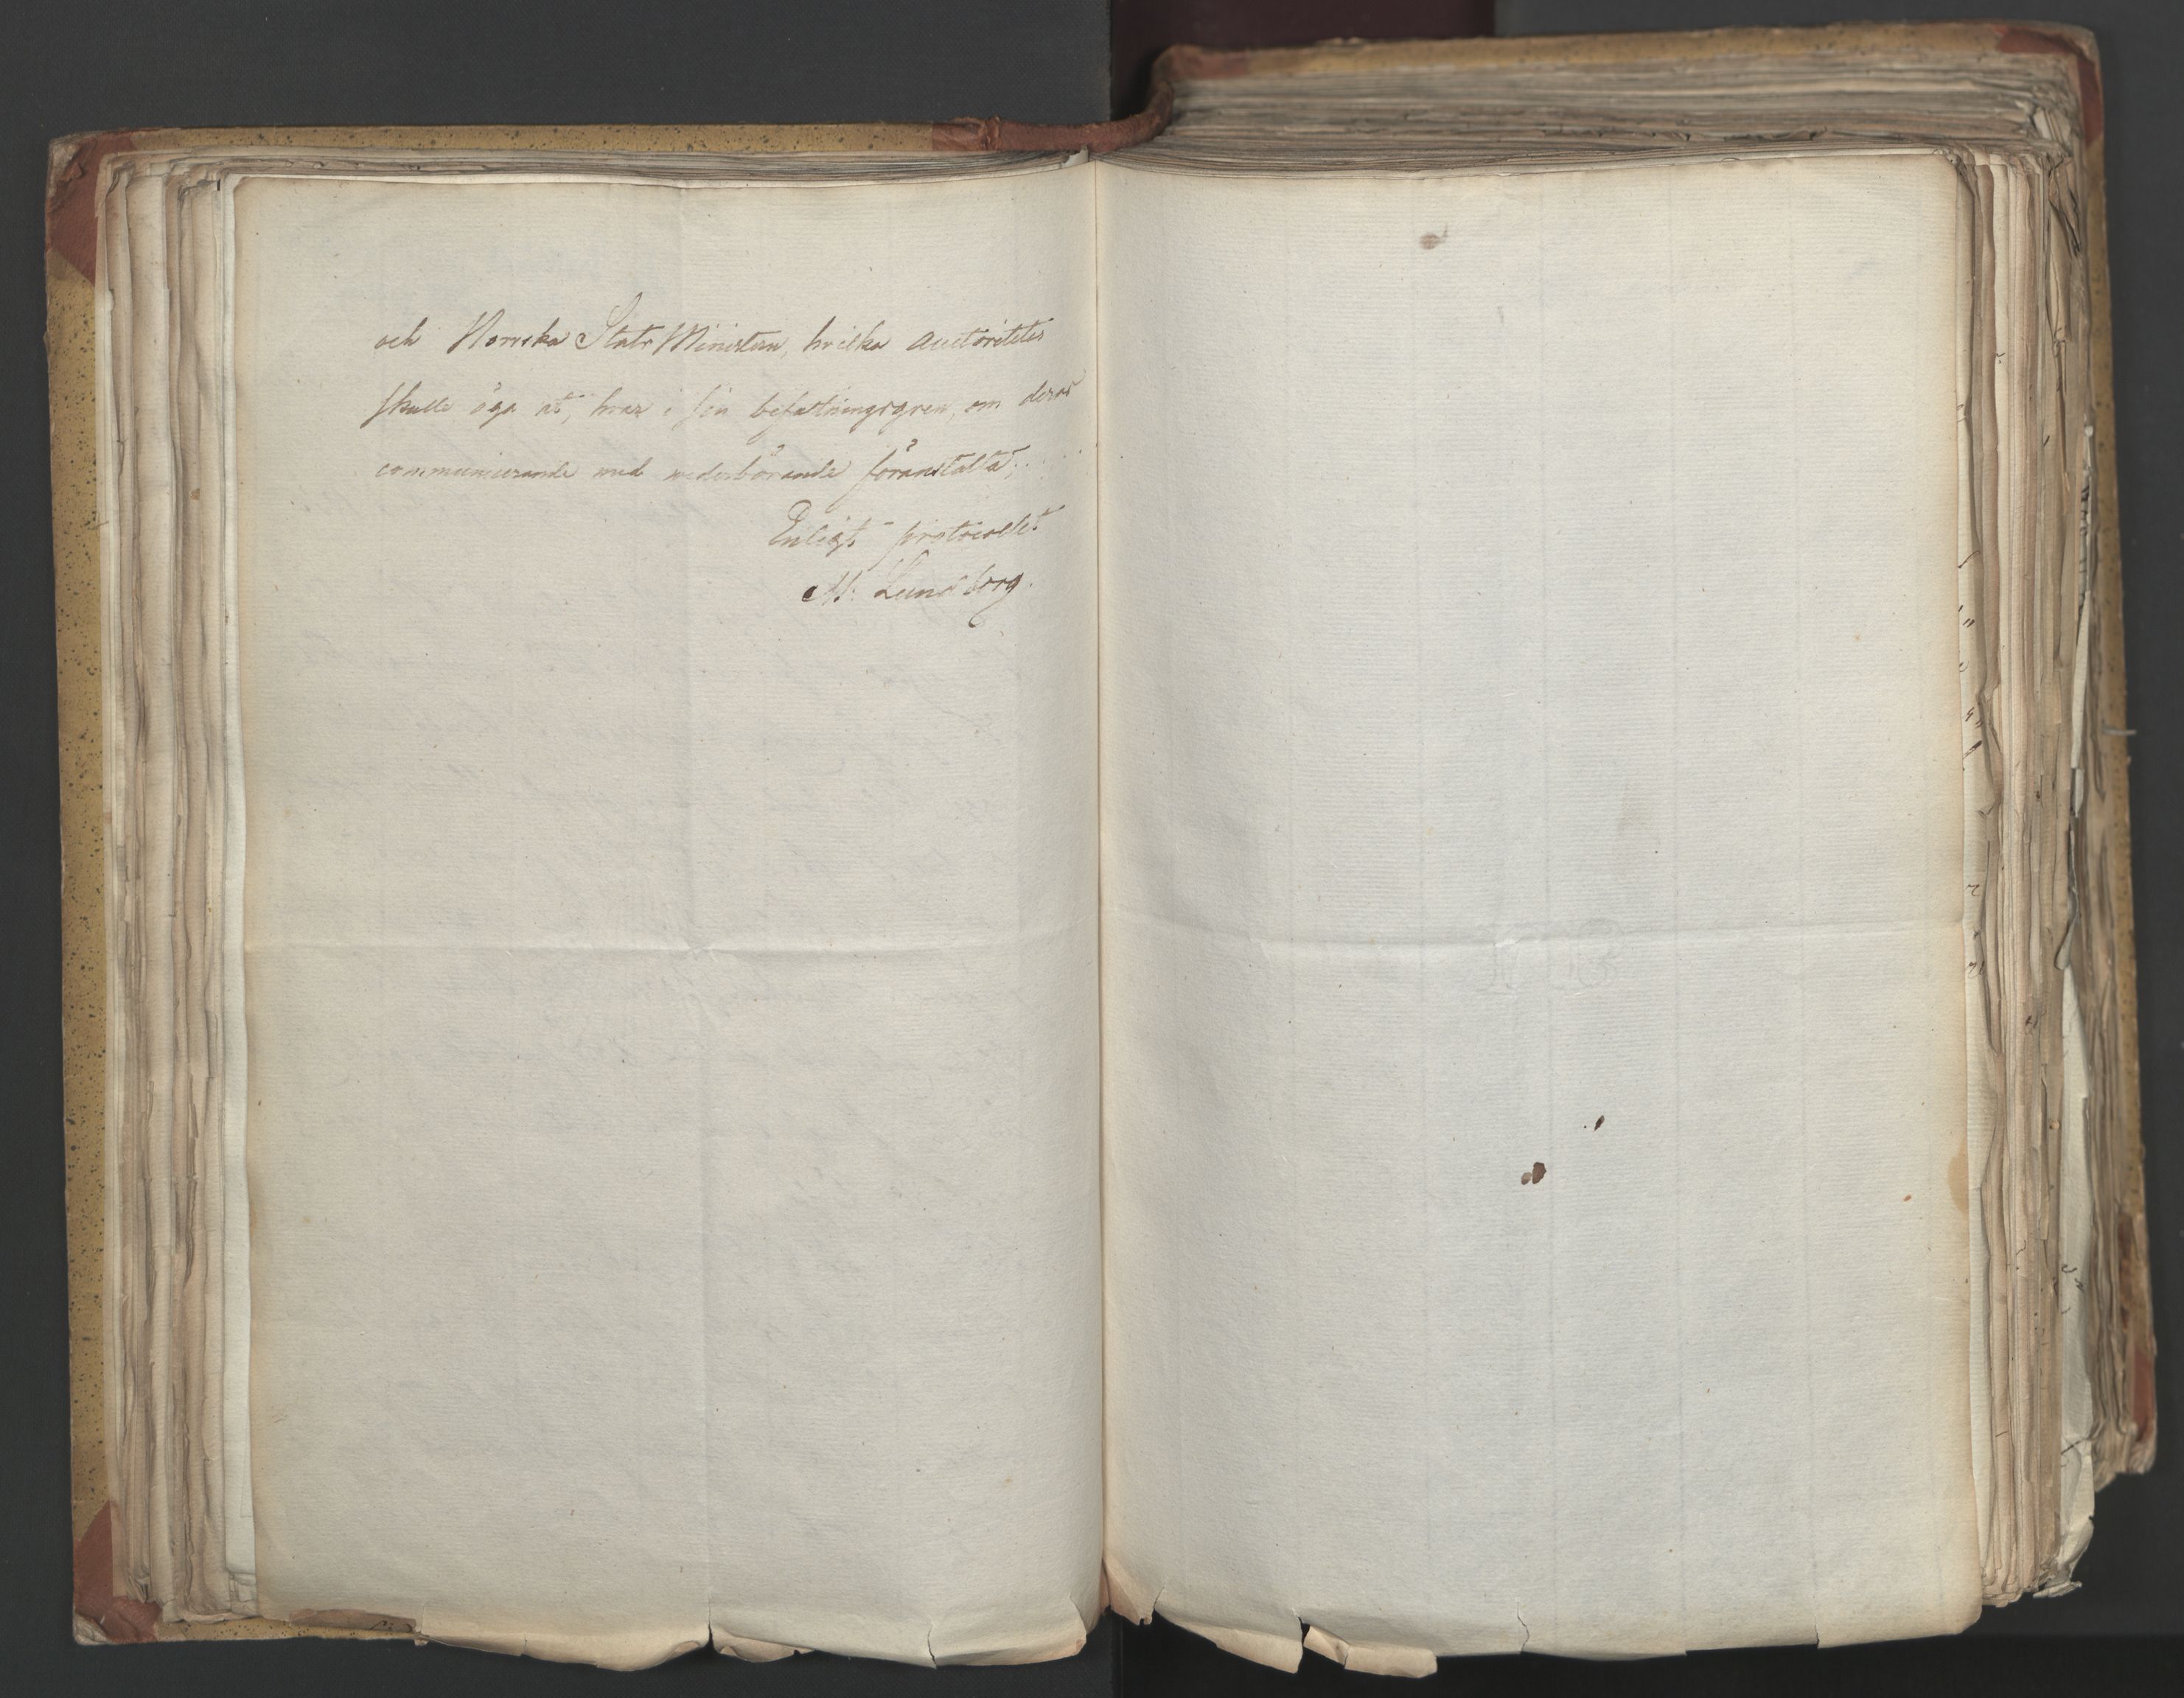 och Norrska Stats Ministern, hvilka Auctoriteter
skulle äga at, hvar i sin befattningsgren, om deras
communicerande med wederbörande föranstalta;
Enligt protocollet
M: Lundborg.